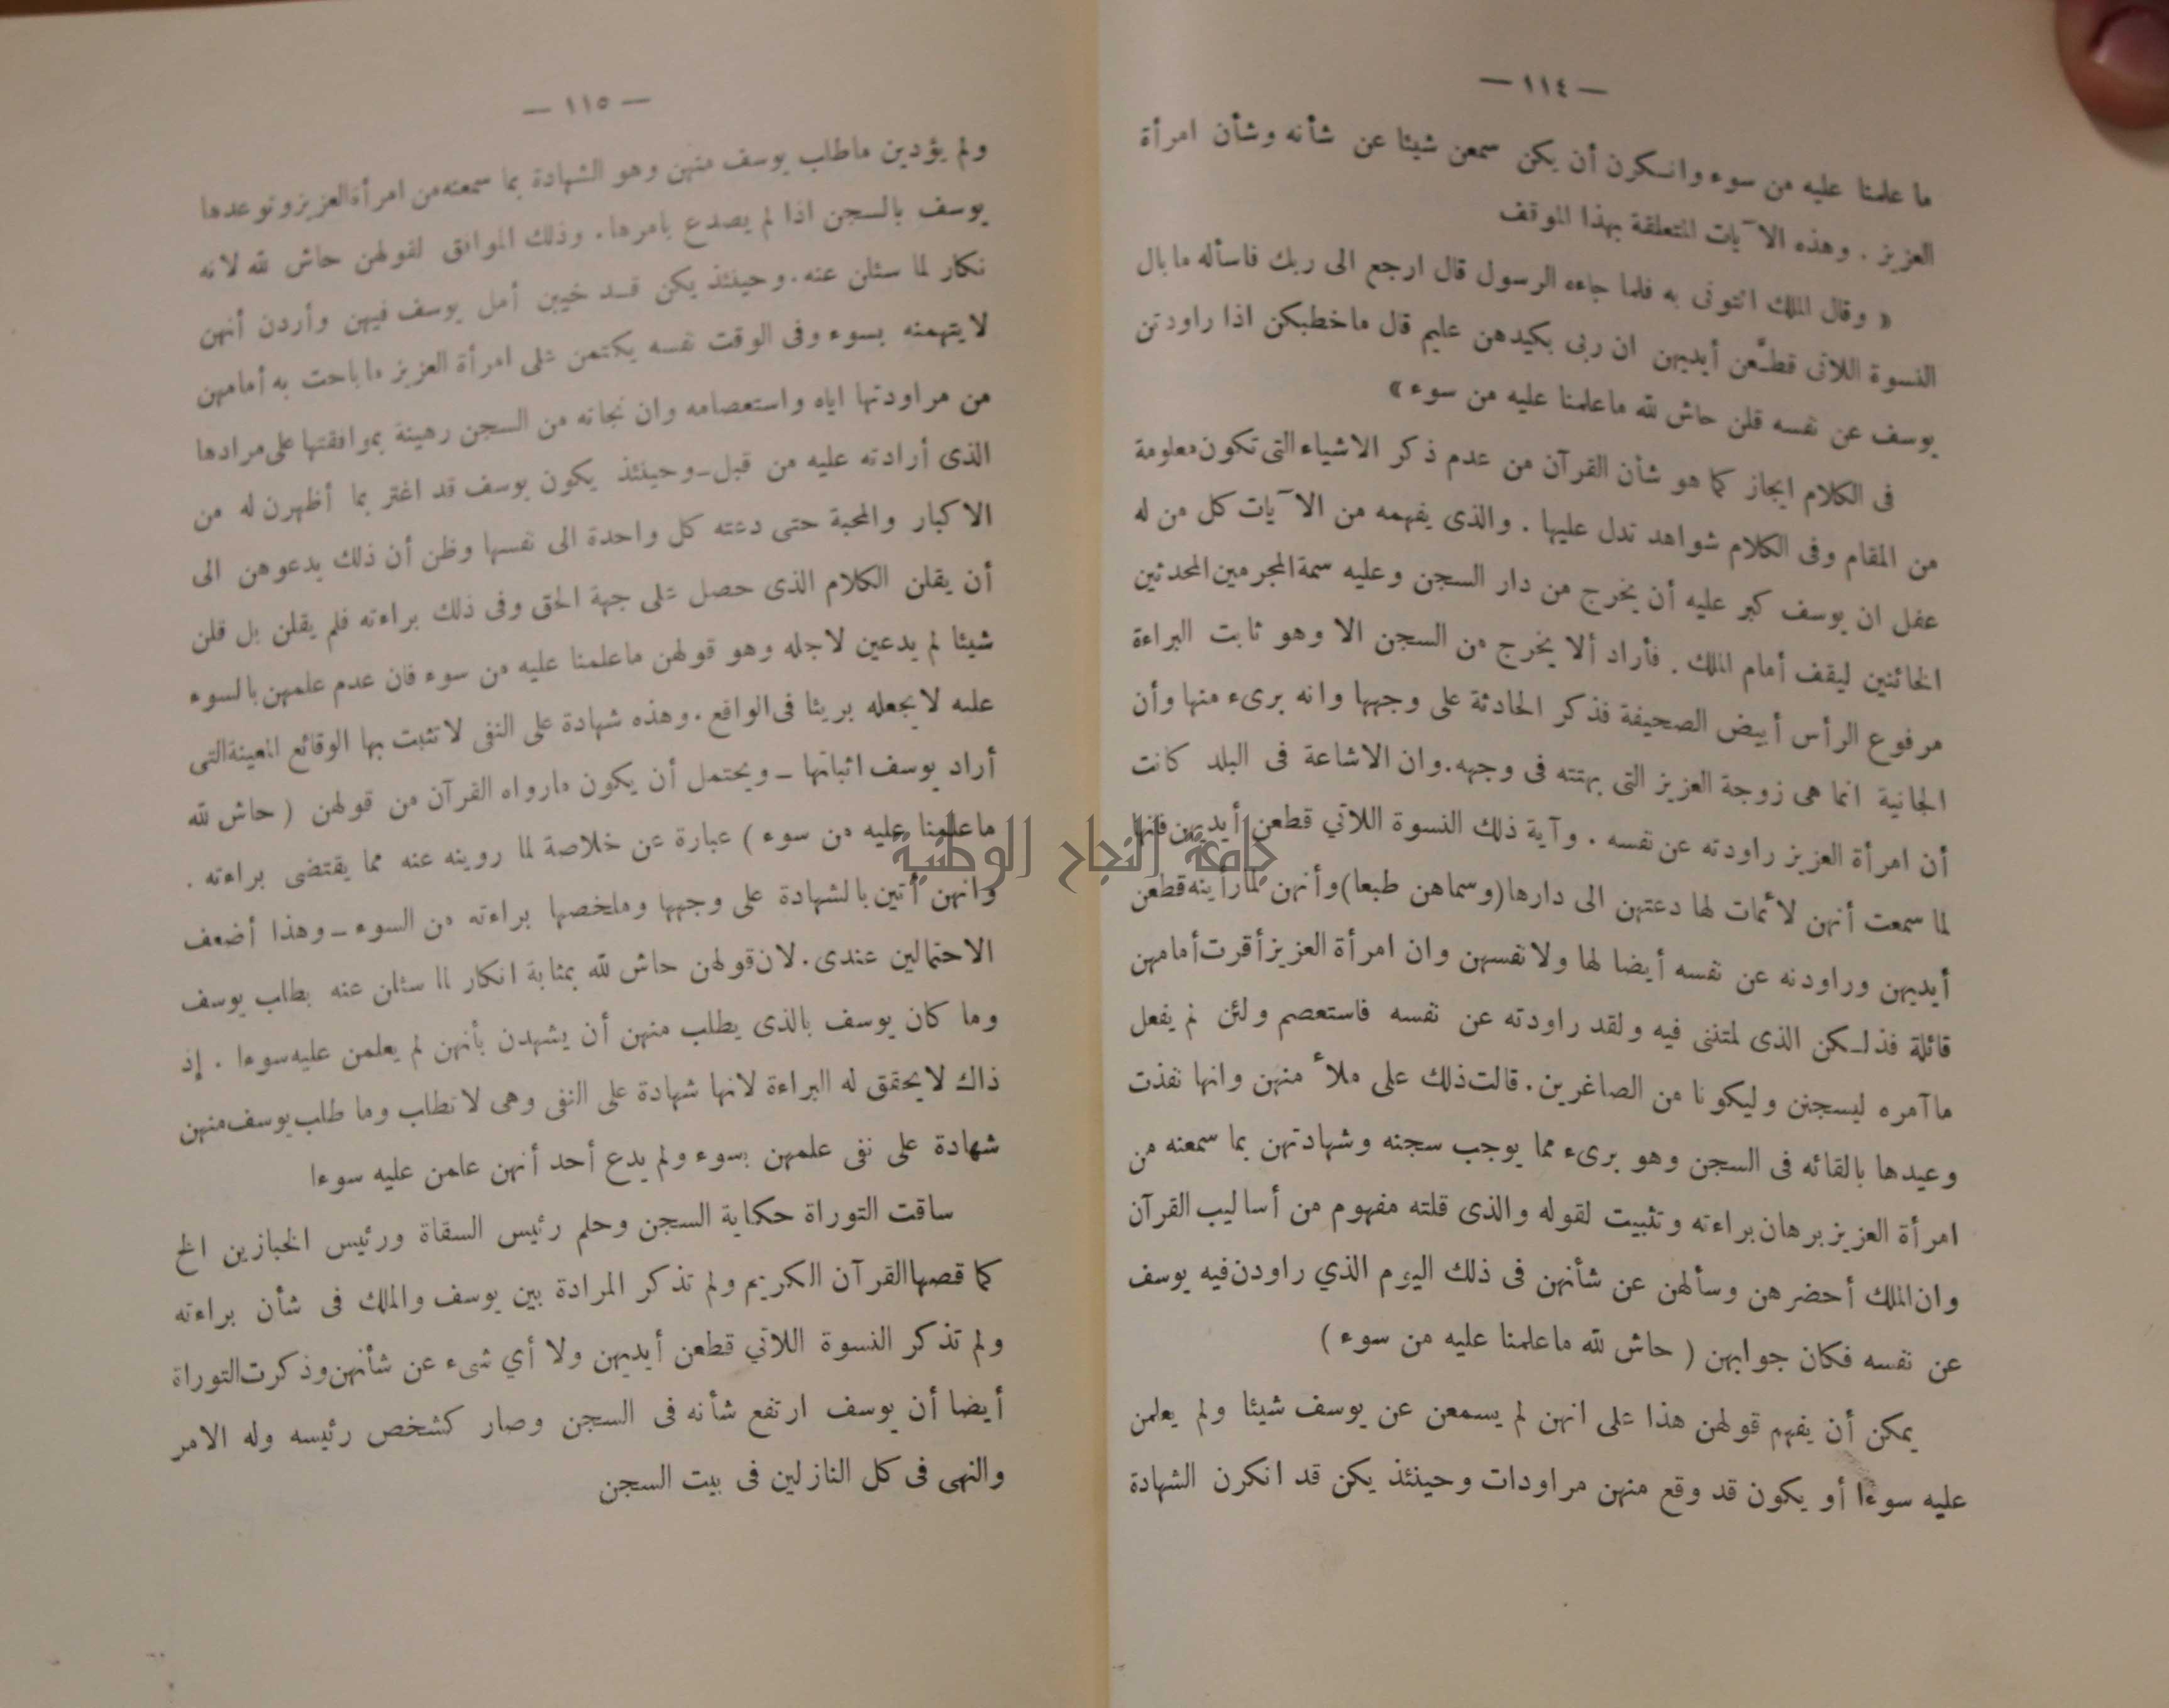 — ١١٤ —
ما علمنا عليه من سوء وانكرن أن يكن سمعن شيئا عن شأنه وشأن امرأة
العزيز . وهذه الآيات المتعلقة بهذا الموقف
« وقال الملك ائتونى به فلما جاءه الرسول قال ارجع الى ربك فاسأله مابال
النسوة اللاتى قطَّعن أيديهن ان ربى بكيدهن عليم قال ماخطبكن اذا راودتن
يوسف عن نفسه قلن حاش لله ماعلمنا عليه من سوء »
فى الكلام ايجاز كما هو شأن القرآن من عدم ذكر الاشياء التى تكون معلومة
من المقام وفى الكلام شواهد تدل عليها . والذى يفهمه من الآيات كل من له
عقل ان يوسف كبر عليه أن يخرج من دار السجن وعليه سمة المجرمين المحدثين
الخائنين ليقف أمام الملك . فأراد ألا يخرج من السجن الا وهو ثابت البراءة
مرفوع الرأس أبيض الصحيفة فذكر الحادثة على وجهها وانه برىء منها وأن
الجانية انما هى زوجة العزيز التى بهتته فى وجهه.وان الاشاعة فى البلد كانت
أن امرأة العزيز راودته عن نفسه . وآية ذلك النسوة اللاتي قطعن أيديهن فانها
لما سمعت أنهن لائمات لها دعتهن الى دارها (وسماهن طبعا) وأنهن لما رأينه قطعن
أيديهن وراودنه عن نفسه أيضا لها ولانفسهن وان امرأة العزيز أقرت أمامهن
قائلة فذلكن الذى لمتننى فيه ولقد راودته عن نفسه فاستعصم ولئن لم يفعل
ماآمره ليسجنن وليكونا من الصاغرين . قالت ذلك على ملأ منهن وانها نفذت
وعيدها بالقائه فى السجن وهو برىء مما يوجب سجنه وشهادتهن بما سمعنه من
امرأة العزيز برهان براءته وتثبيت لقوله والذى قلته مفهوم من أساليب القرآن
وان الملك أحضرهن وسألهن عن شأنهن فى ذلك اليوم الذي راودن فيه يوسف
عن نفسه فكان جوابهن ( حاش لله ماعلمنا عليه من سوء )
يمكن أن يفهم قولهن هذا على انهن لم يسمعن عن يوسف شيئا ولم يعلمن
عليه سوءا أو يكون قد وقع منهن مراودات وحينئذ يكن قد انكرن الشهادة
— ١١٥ —
ولم يؤدين ماطلب يوسف منهن وهو الشهادة بما سمعنه من امرأة العزيز وتوعدها
يوسف بالسجن اذا لم يصدع بامرها . وذلك الموافق لقولهن حاش لله لانه
نكار لما سئلن عنه . وحينئذ يكن قد خيبن أمل يوسف فيهن وأردن أنهن
لايتهمنه بسوء وفى الوقت نفسه يكتمن على امرأة العزيز ماباحت به أمامهن
من مراودتها اياه واستعصامه وان نجاته من السجن رهينة بموافقتها على مرادها
الذى أرادته عليه من قبل - وحينئذ يكون يوسف قد اغتر بما أظهرن له من
الاكبار والمحبة حتى دعته كل واحدة الى نفسها وظن أن ذلك يدعوهن الى
أن يقلن الكلام الذى حصل على جهة الحق وفى ذلك براءته فلم يقلن بل قلن
شيئا لم يدعين لاجله وهو قولهن ماعلمنا عليه من سوء فان عدم علمهن بالسوء
عليه لايجعله بريئا فى الواقع . وهذه شهادة على النفى لاتثبت بها الوقائع المعينة التى
أراد يوسف اثباتها - ويحتمل أن يكون مارواه القرآن من قولهن ( حاش لله
ماعلمنا عليه من سوء ) عبارة عن خلاصة لما روينه عنه مما يقتضى براءته .
وانهن أتين بالشهادة على وجهها وملخصها براءته من السوء - وهذا أضعف
الاحتمالين عندى . لان قولهن حاش لله بمثابة انكار لما سئلن عنه بطلب يوسف
وما كان يوسف بالذى يطلب منهن أن يشهدن بأنهن لم يعلمن عليه سوءا . إذ
ذاك لايحقق له البراءة لانها شهادة على النفى وهى لاتطلب وما طلب يوسف منهن
شهادة على نفى علمهن بسوء ولم يدع أحد أنهن علمن عليه سوءا
ساقت التوراة حكاية السجن وحلم رئيس السقاة ورئيس الخبازين الخ
كما قصها القرآن الكريم ولم تذكر المرادة بين يوسف والملك فى شأن براءته
ولم تذكر النسوة اللاتي قطعن أيديهن ولا أي شىء عن شأنهن وذكرت التوراة
أيضا أن يوسف ارتفع شأنه فى السجن وصار كشخص رئيسه وله الامر
والنهى فى كل النازلين فى بيت السجن
جامعة النجاح الوطنية